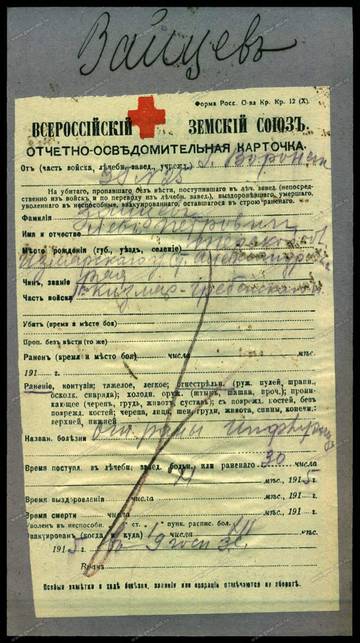 Зайцевъ
Форма Росс. О-ва Кр. Кр. 12 (X).
ВСЕРОССІЙСКІЙ ЗЕМСКІЙ СОЮЗЪ.
ОТЧЕТНО-ОСВѢДОМИТЕЛЬНАЯ КАРТОЧКА.
Отъ (часть войска, лѣчебн. завед., учрежд.) г. Воронеж
На убитаго, пропавшаго безъ вѣсти, поступившаго въ лѣч. завед. (непосред-
ственно изъ войскъ и по переводу изъ лѣчебн. завед.), выздоровѣвшаго, умершаго,
уволеннаго въ неспособные, эвакуированнаго, оставшагося въ строю раненаго.
Фамилія
Имя и отчество Петровичъ
Мѣсто рожденія (губ., уѣздъ, селеніе) Терской
Чинъ, званіе
Часть войска Кизляр-Гребенской
Убитъ (время и мѣсто боя)
Проп. безъ вѣсти (то же)
Раненъ (время и мѣсто боя) числа мѣс.
191 г.
Раненіе, контузія; тяжелое, легкое; огнестрѣльн. (руж. пулей, шрапн.,
оскол. снаряда); холодн. оруж. (штык., шашка, проч.); прони-
кающее (черепъ, грудь, животъ, суставъ); съ повреж. костей, безъ
поврежд. костей; черепа, лица, шеи, груди, живота, спины, конечн.:
верхней, нижней
Назван. болѣзни
Время поступл. въ лѣчебн. завед. больн. или раненаго 30 числа
XI мѣс. 1915 г.
Время выздоровленія числа мѣс. 191 г.
Время смерти числа мѣс. 191 г.
Уволенъ въ неспособн. ст. пунк. распис. бол.
Эвакуированъ (когда и куда)
1915 въ 9 госп ЗС
Врачъ
Особыя замѣтки о ходѣ болѣзни, раненія или операціи отмѣчаются на оборотѣ.